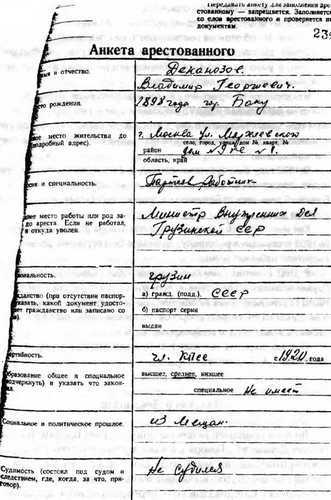 Передавать анкету для заполнения аре-
стованному — запрещается. Заполняется
со слов арестованного и проверяется по
документам.
239
Анкета арестованного
я и отчество.
Деканозов
Владимир Георгиевич.
сто рождения.
1898 года гор. Баку
ное место жительства до
подробный адрес).
г. Москва ул.
село, город, улица, дом №, кварт. №
район дом №
область, край
сия и специальность.
Партраб работник
нее место работы или род за-
до ареста. Если не работал,
и откуда уволен.
Министр Внутренних Дел
Грузинской ССР
нальность.
грузин
данство (при отсутствии паспор-
указать, какой документ удосто-
ет гражданство или записано со
в).
а) гражд. (подд.). СССР
б) паспорт серия
выдан
артийность.
чл. КПСС с 1920 года
бразование общее и специальное
подчеркнуть) и указать что закон-
высшее, среднее, низшее
специальное Не имеет
Социальное и политическое прошлое.
из мещан.
Судимость (состоял под судом и
следствием, где, когда, за что, при-
говор).
Не судился